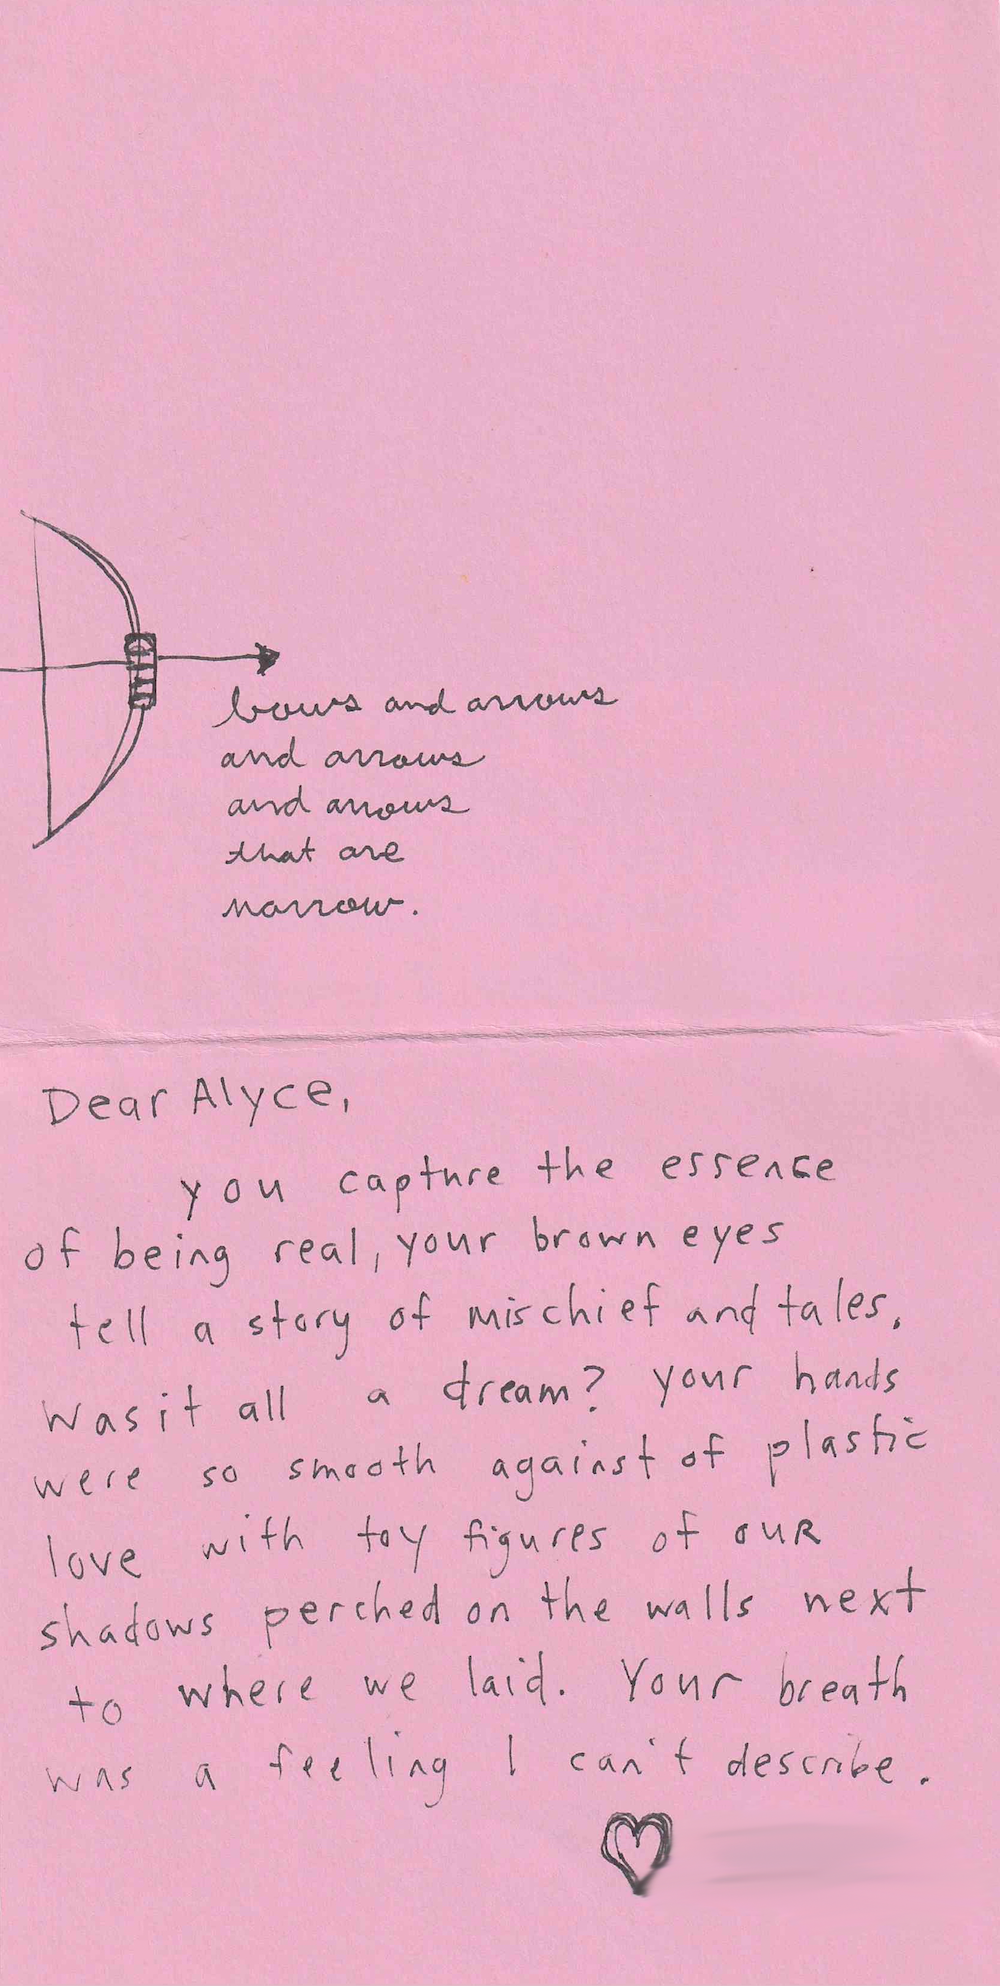 bows and arrows
and arrows
and arrows
that are
narrow.
Dear Alyce,
you capture the essence
of being real, your brown eyes
tell a story of mischief and tales.
Was it all a dream? your hands
were so smooth against of plastic
love with toy figures of our
shadows perched on the walls next
to where we laid. Your breath
was a feeling I can't describe.